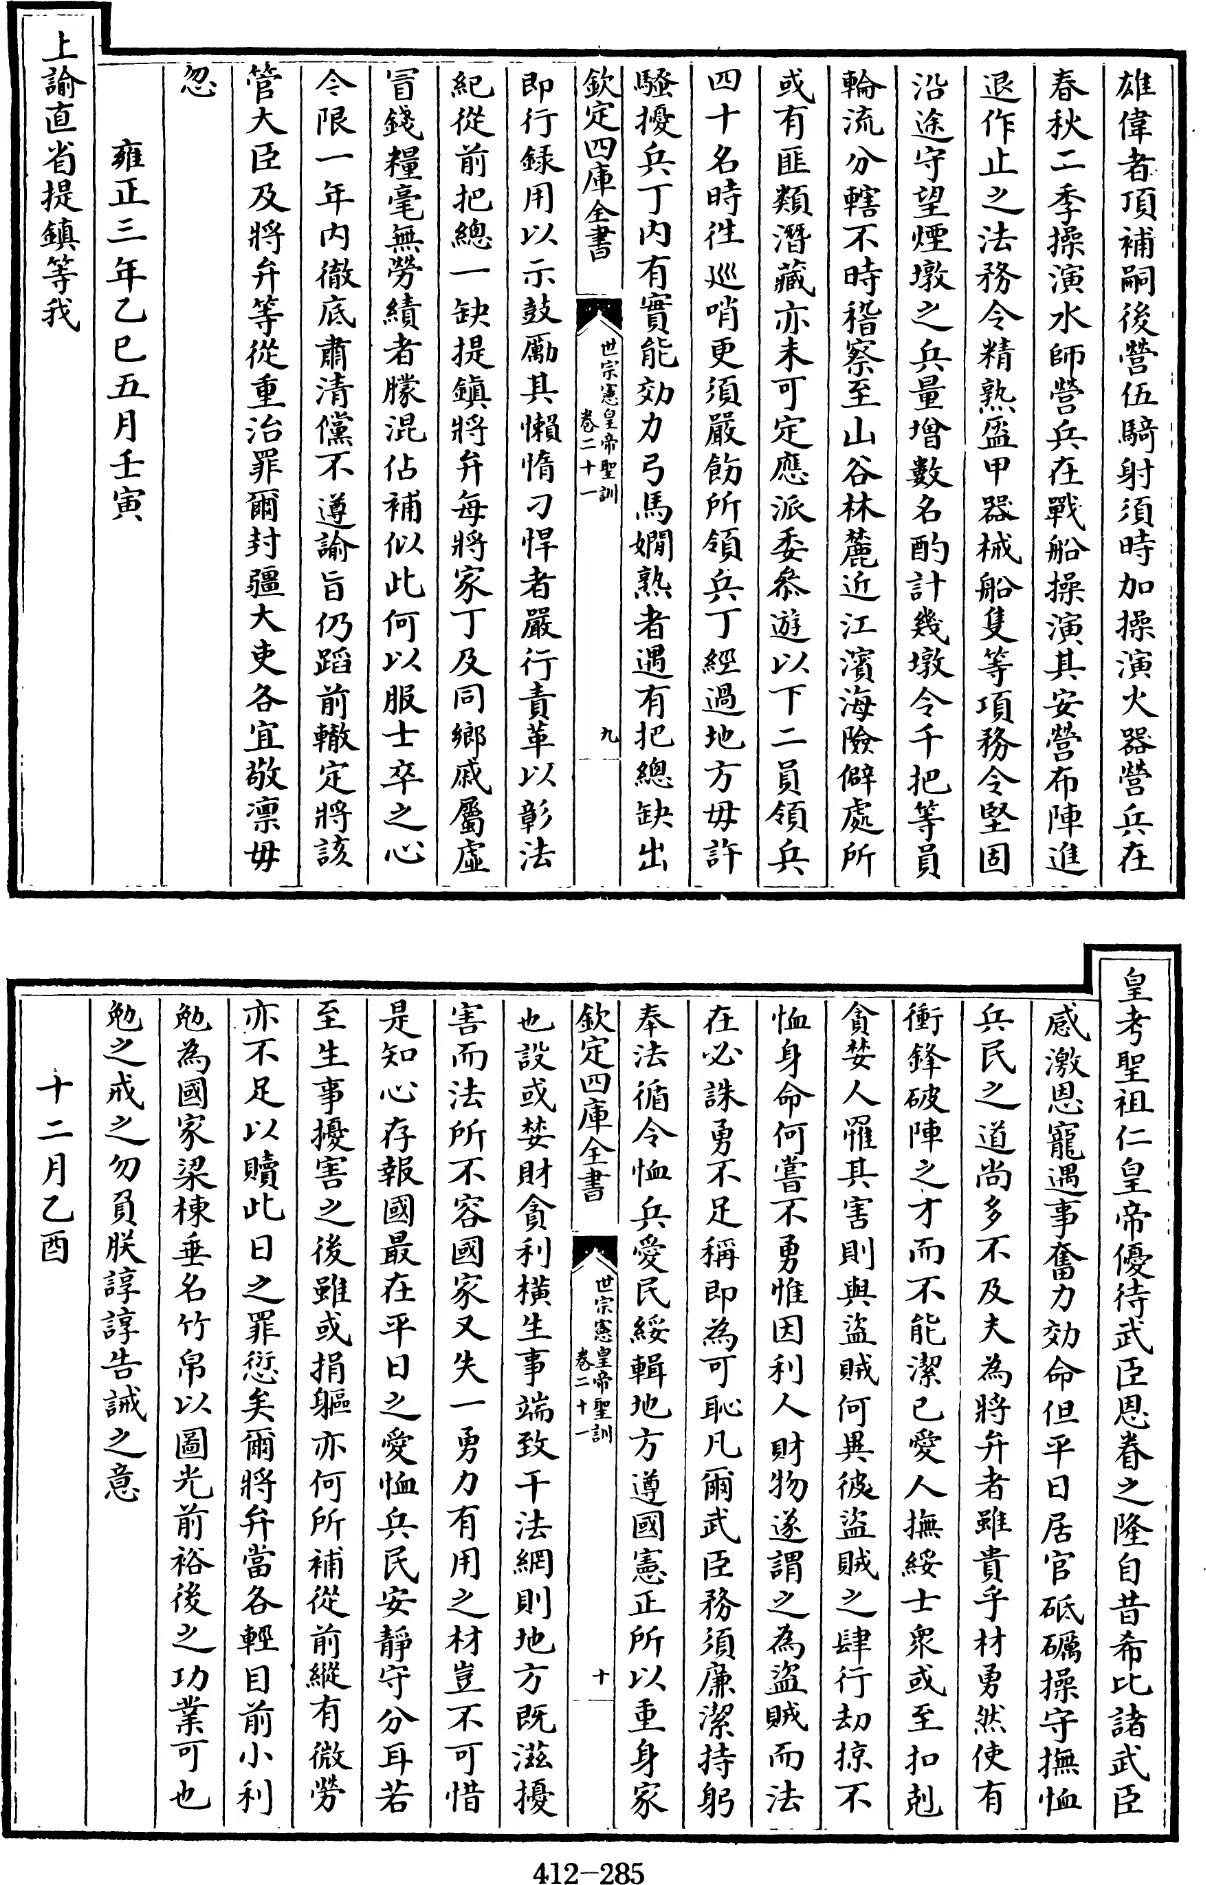 雄偉者頂補嗣後營伍騎射須時加操演火器營兵在
春秋二季操演水師營兵在戰船操演其安營布陣進
退作止之法務令精熟盔甲器械船隻等項務令堅固
沿途守望煙墩之兵量增數名酌計幾墩令千把等員
輪流分轄不時稽察至山谷林麓近江濱海險僻處所
或有匪類潛藏亦未可定應派委叅遊以下二員領兵
四十名時徃巡哨更須嚴飭所領兵丁經過地方毋許
騷擾兵丁内有實能効力弓馬嫺熟者遇有把總缺出
欽定四庫全書
世宗憲皇帝聖訓
卷二十一
九
即行録用以示鼓勵其懶惰刁悍者嚴行責革以彰法
紀從前把總一缺提鎮將弁每將家丁及同鄉戚屬虛
冒錢糧毫無勞績者朦混佔補似此何以服士卒之心
令限一年内徹底肅清儻不遵諭旨仍蹈前轍定將該
管大臣及將弁等從重治罪爾封疆大吏各宜敬凛毋
忽
雍正三年乙巳五月壬寅
上諭直省提鎮等我
皇考聖祖仁皇帝優待武臣恩眷之隆自昔希比諸武臣
感激恩寵遇事奮力効命但平日居官砥礪操守撫恤
兵民之道尚多不及夫為將弁者雖貴乎材勇然使有
衝鋒破陣之才而不能潔已愛人撫綏士衆或至扣剋
貪婪人罹其害則與盜賊何異彼盜賊之肆行劫掠不
恤身命何嘗不勇惟因利人財物遂謂之為盜賊而法
在必誅勇不足稱即為可恥凡爾武臣務須廉潔持躬
奉法循令恤兵愛民綏輯地方遵國憲正所以重身家
欽定四庫全書
世宗憲皇帝聖訓
卷二十一
十
也設或婪財貪利橫生事端致干法網則地方既滋擾
害而法所不容國家又失一勇力有用之材豈不可惜
是知心存報國最在平日之愛恤兵民安靜守分耳若
至生事擾害之後雖或捐軀亦何所補從前縱有微勞
亦不足以贖此日之罪愆矣爾將弁當各輕目前小利
勉為國家梁棟垂名竹帛以圖光前裕後之功業可也
勉之戒之勿負朕諄諄告誡之意
十二月乙酉
412-285